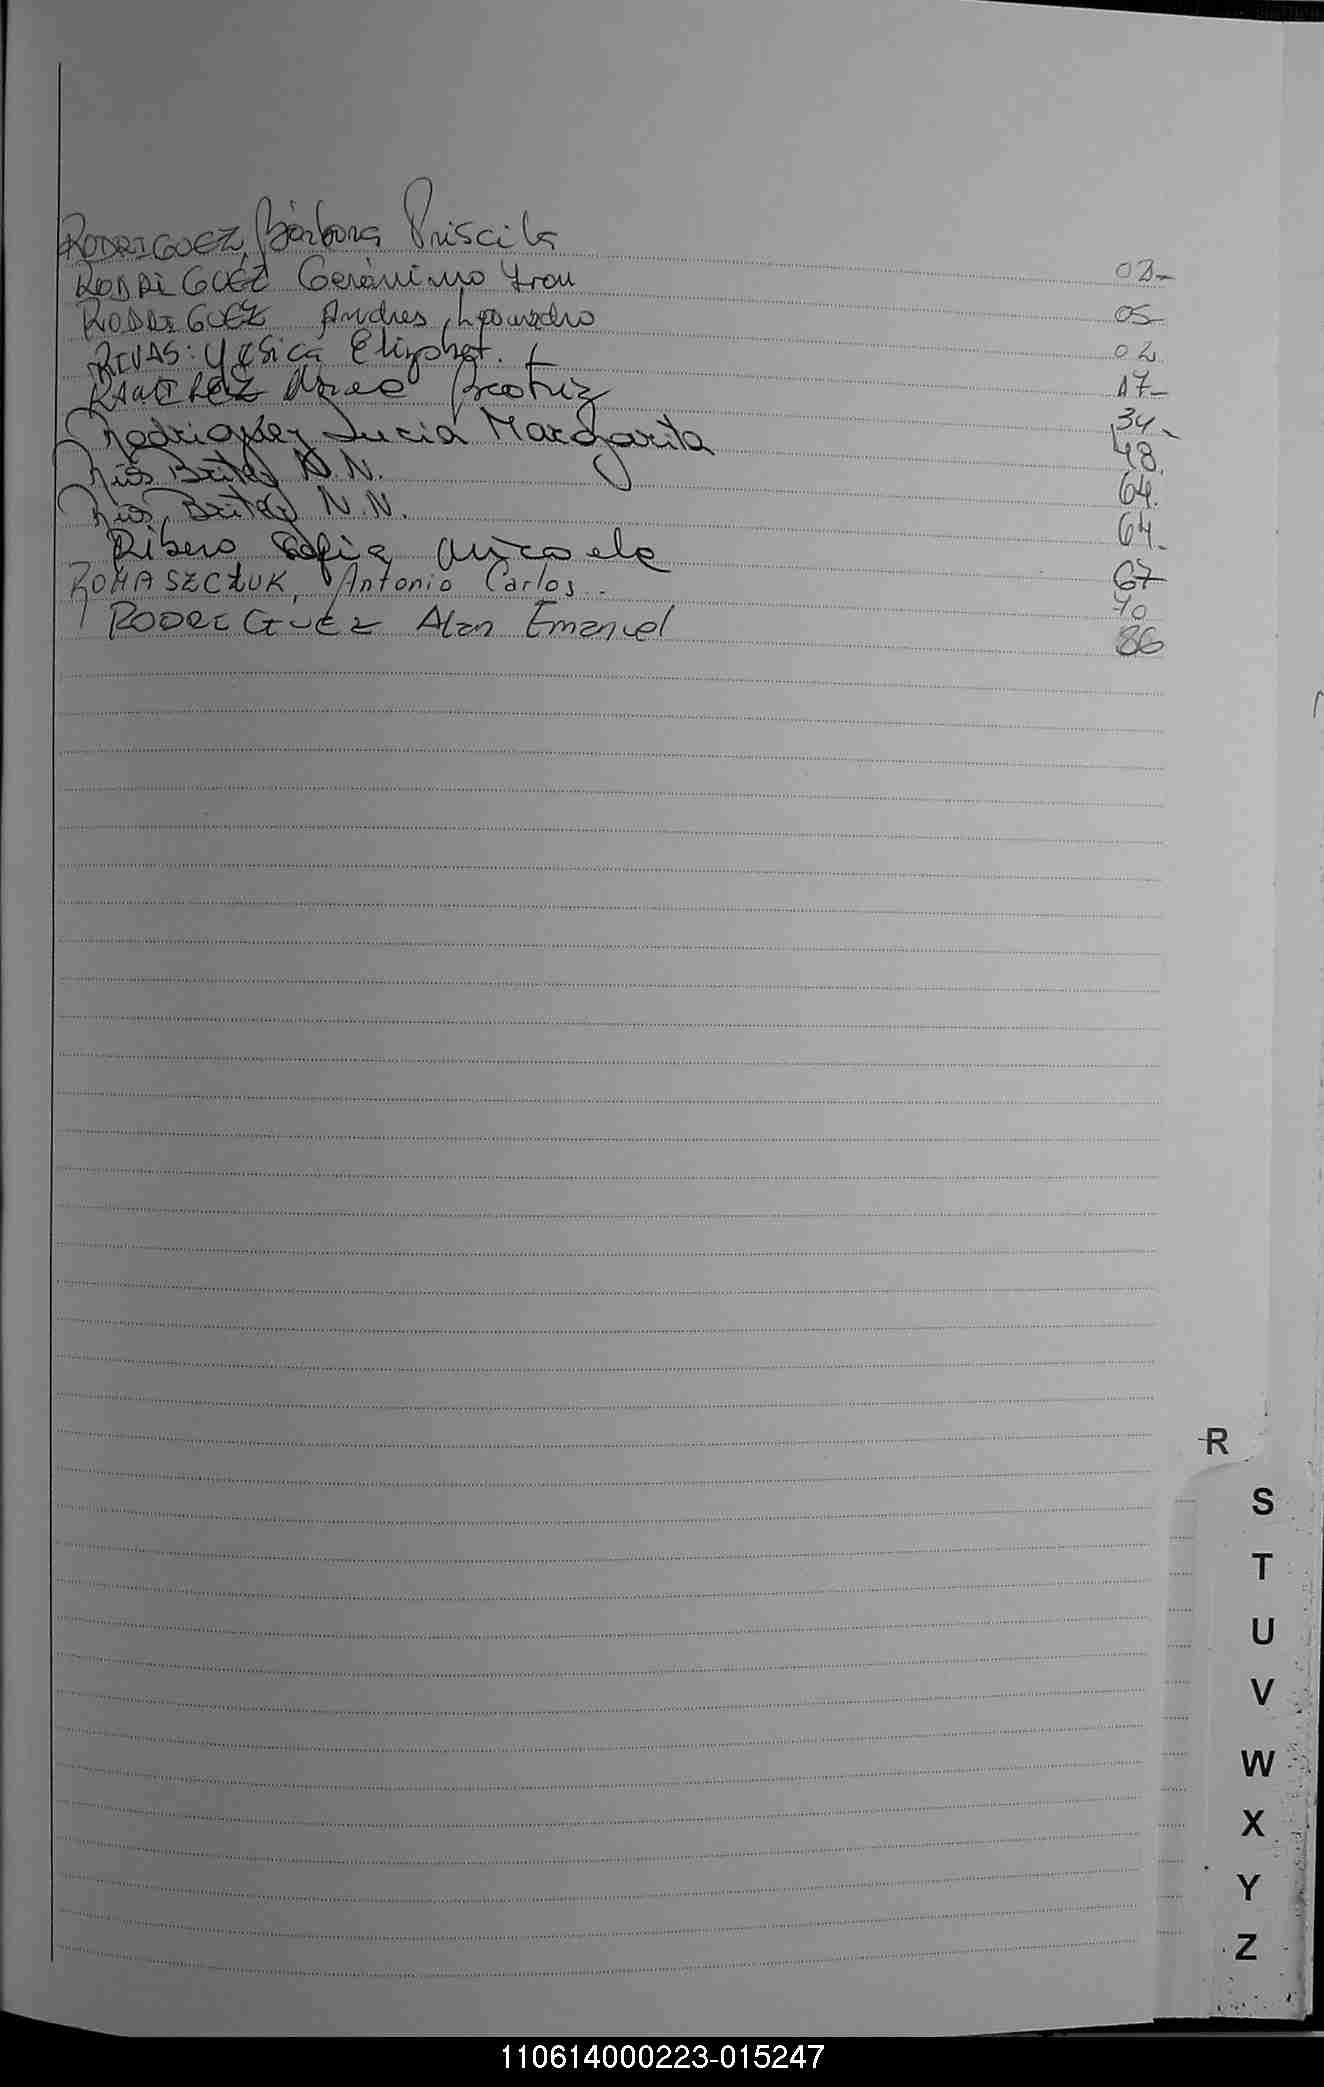 RODRIGUEZ, Bárbara Priscila 03-
RODRIGUEZ Gerónimo 05
RODRIGUEZ Andres Leonardo 02
RIVAS: Yesica Elizabet. 17-
RAMIREZ Beatriz 34-
Rodriguez Lucia Margarita 48.
Rios Beitez N.N. 64.
Rios, Beitez N.N. 64-
Ribero Sofia Micaela 67
ROMASZCZUK, Antonio Carlos. 70
RODRIGUEZ Alan Emanuel 86
R
S
T
U
V
W
X
Y
Z
110614000223-015247